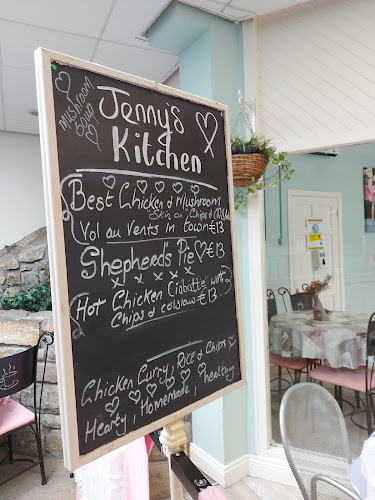 mushroom
Soup
Jenny's
Kitchen
Best Chicken & Mushroom
Skin on Chips &
Vol au vents in town €13
Shepherd's Pie €13
x x x x x
Hot Chicken Ciabatta with
Chips & coleslaw €13
Chicken Curry, RICE & Chips
Hearty, Homemade, healthy